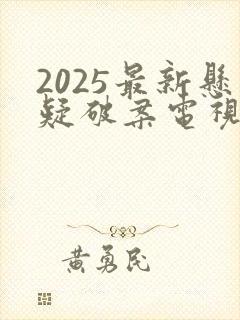 2025最新懸
疑破案電視
黃勇民